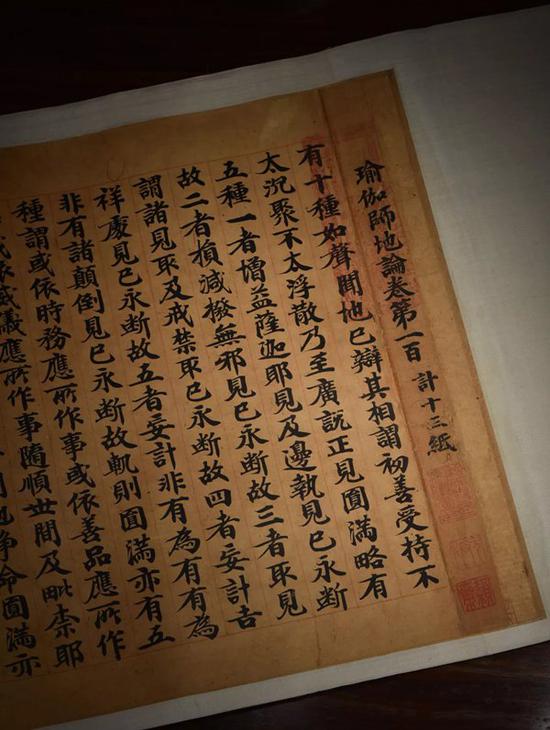 瑜伽師地論卷第一百 計十三紙
有十種如聲聞地已辯其相謂初善受持不
太沉聚不太浮散乃至廣說正見圓滿略有
五種一者增益薩迦耶見及邊執見已永斷
故二者損減撥無邪見已永斷故三者取見
謂諸見取及戒禁取已永斷故四者妄計吉
祥慶見已永斷故五者妄計非有為有有為
非有諸顛倒見已永斷故軌則圓滿亦有五
種謂或依時務應所作事或依善品應所作
或依威儀應所作事隨順世間及毗柰耶
淨命圓滿亦